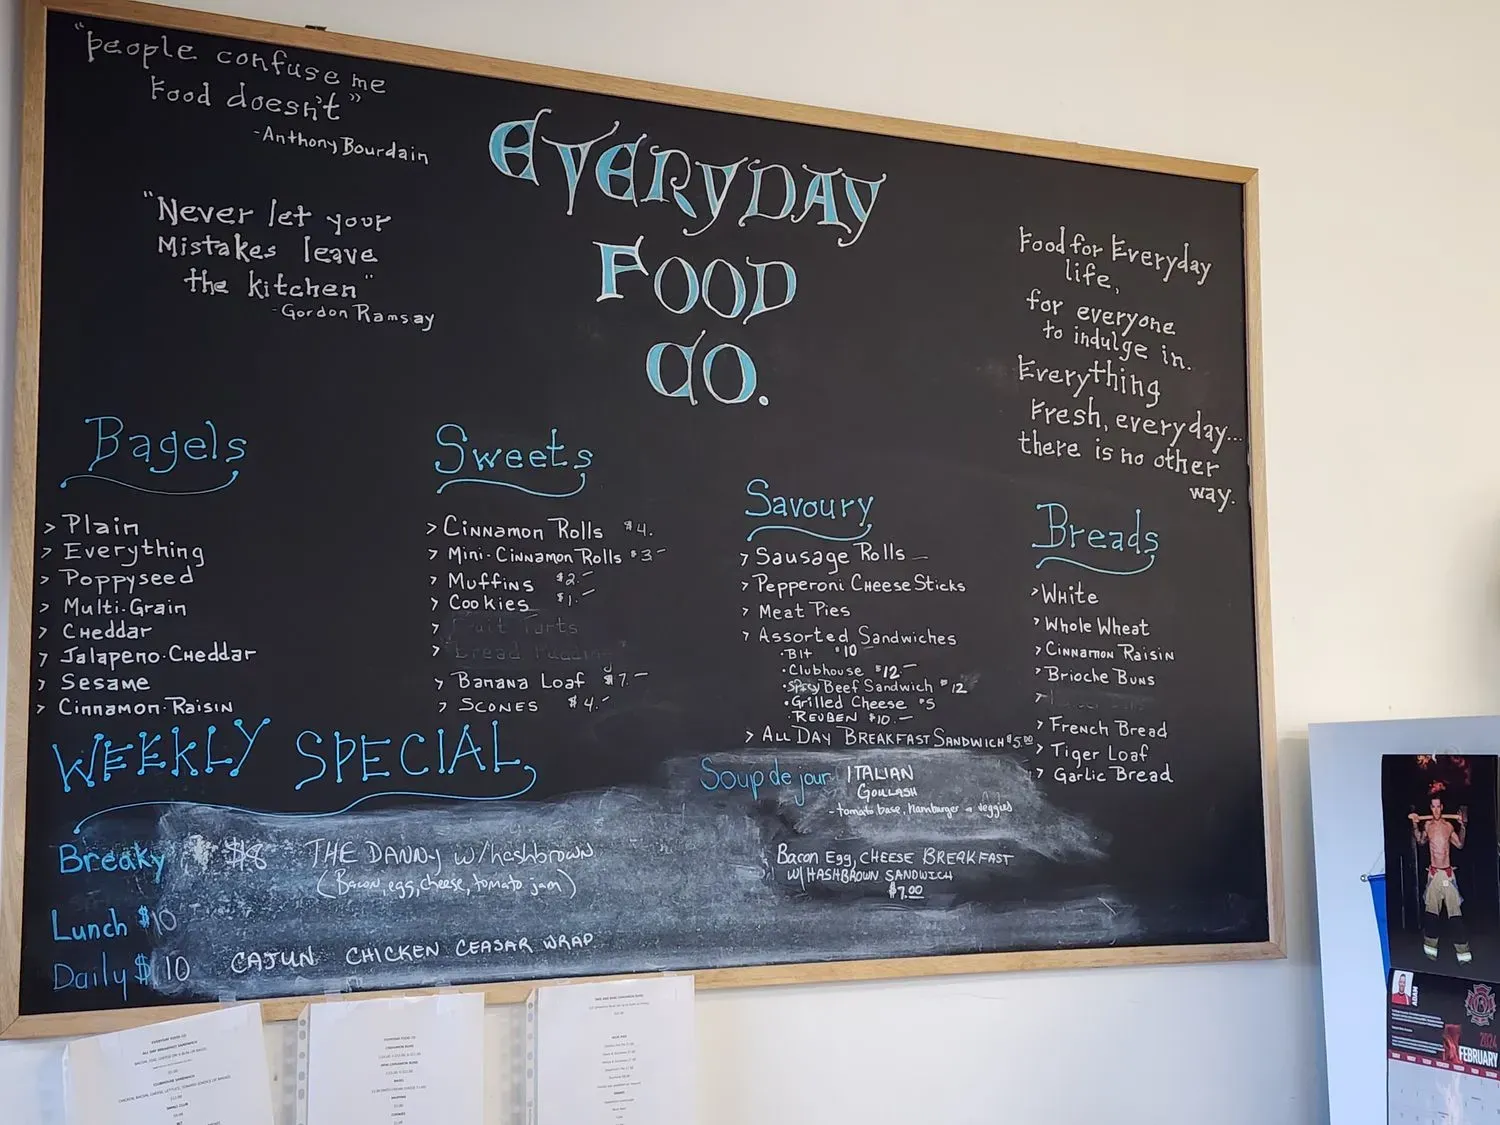 "People confuse me
Food doesn't"
-Anthony Bourdain
"Never let your
Mistakes leave
the kitchen"
-Gordon Ramsay
EVERYDAY
FOOD
CO.
Food for Everyday
life,
for everyone
to indulge in.
Everything
Fresh, everyday...
there is no other
way.
Bagels
> Plain
> Everything
> Poppyseed
> Multi-Grain
> Cheddar
> Jalapeno-Cheddar
> Sesame
> Cinnamon-Raisin
Sweets
> Cinnamon Rolls $4.
> Mini-Cinnamon Rolls $3-
> Muffins $2.-
> Cookies $1.-
> Fruit Tarts
> Bread Pudding
> Banana Loaf $7.-
> Scones $4.-
Savoury
> Sausage Rolls
> Pepperoni Cheese Sticks
> Meat Pies
> Assorted Sandwiches
•Blt $10
•Clubhouse $12.-
•Spicy Beef Sandwich $12
•Grilled Cheese $5
•REUBEN $10.-
> ALL DAY BREAKFAST SANDWICH $5.00
Breads
> White
> Whole Wheat
> Cinnamon Raisin
> Brioche Buns
>
> French Bread
> Tiger Loaf
> Garlic Bread
WEEKLY SPECIAL
Breaky $8 THE DANNY w/hashbrown
(Bacon, egg, cheese, tomato jam)
Lunch $10
Daily $10 CAJUN CHICKEN CEASAR WRAP
Soup de jour ITALIAN
GOULASH
-tomato base, hamburger + veggies
Bacon Egg, CHEESE BREAKFAST
W/ HASHBROWN SANDWICH
$7.00
EVERYDAY FOOD CO
ALL DAY BREAKFAST SANDWICH
CLUBHOUSE SANDWICH
EVERYDAY FOOD CO
CINNAMON BUNS
BAGEL
MUFFINS
COOKIES
ADAM
2024
FEBRUARY